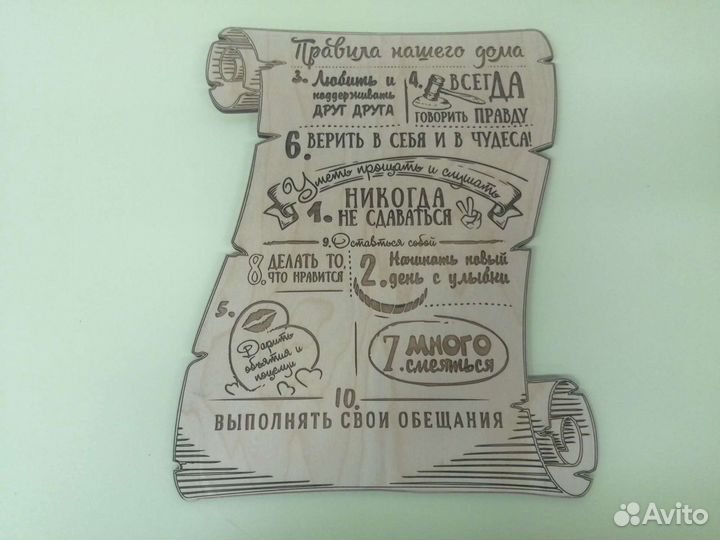 Правила нашего дома
3. Любить и
поддерживать
ДРУГ ДРУГА
4. ВСЕГДА
ГОВОРИТЬ ПРАВДУ
6. ВЕРИТЬ В СЕБЯ И В ЧУДЕСА!
Уметь прощать и слушать
1. НИКОГДА
НЕ СДАВАТЬСЯ
9. Оставться собой
8. ДЕЛАТЬ ТО,
ЧТО НРАВИТСЯ
2. Начинать новый
день с улыбки
5.
Дарить
объятия и
поцелуи
7. МНОГО
смеяться
10.
ВЫПОЛНЯТЬ СВОИ ОБЕЩАНИЯ
Avito